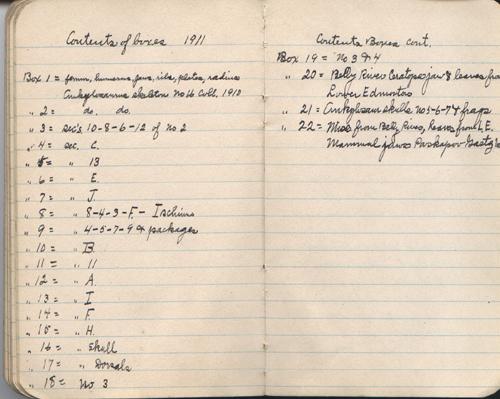 Contents of boxes 1911
Box 1 = femur, humerus, jaws, ribs, plates, radius
Ankylosaurus skeleton No 16 Coll. 1910
" 2 = do. do.
" 3 = sec's 10-8-6-12 of no 2
" 4 = sec. C.
" 5 = " 13
" 6 = " E.
" 7 = " J.
" 8 = " 8-4-3-F- Ischium
" 9 = " 4-5-7-9 & packages
" 10 = " B
" 11 = " 11
" 12 = " A.
" 13 = " I
" 14 = " F.
" 15 = " H.
" 16 = " Skull
" 17 = " Dorsals
" 18 = No 3
Contents Boxes cont.
Box 19 = No 3 & 4
" 20 = Belly River Ceratops jaw & leaves from
Lower Edmonton
" 21 = Ankylosaur skulls no's-6-7 & frags
" 22 = Misc from Belly River, leaves from L.E.
Mammal jaws